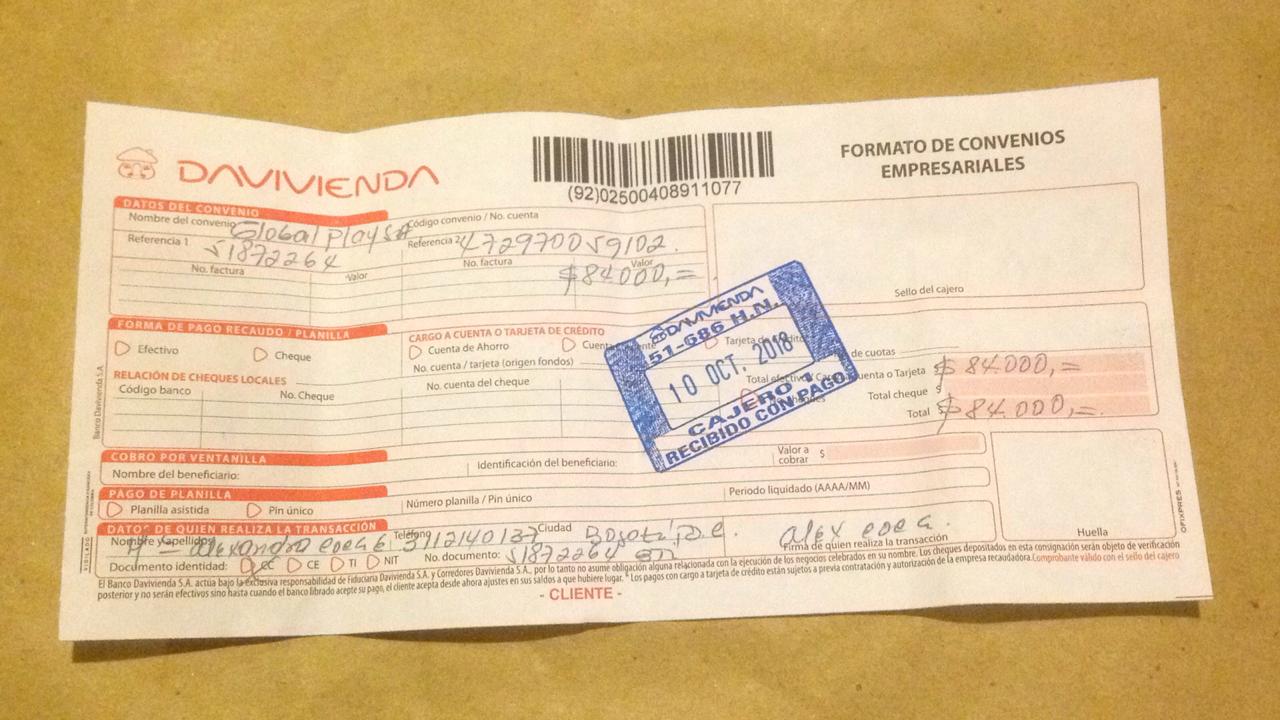 DAVIVIENDA
(92)02500408911077
FORMATO DE CONVENIOS
EMPRESARIALES
DATOS DEL CONVENIO
Nombre del convenio Global Play SA Código convenio / No. cuenta
Referencia 1 51872264 Referencia 2 472970059102.
No. factura Valor No. factura Valor
$84.000,=
Sello del cajero
FORMA DE PAGO RECAUDO / PLANILLA
Efectivo Cheque
CARGO A CUENTA O TARJETA DE CRÉDITO
Cuenta de Ahorro
No. cuenta / tarjeta (origen fondos)
de cuotas
RELACIÓN DE CHEQUES LOCALES
Código banco No. Cheque No. cuenta del cheque
DAVIVIENDA
51-686 H.N.
10 OCT. 2018
CAJERO 1
RECIBIDO CON PAGO
Total efectivo / Cargo cuenta o Tarjeta $ 84.000,=
Total cheque $
Total $ 84.000,=.
COBRO POR VENTANILLA
Nombre del beneficiario: Identificación del beneficiario: Valor a cobrar $
PAGO DE PLANILLA
Planilla asistida Pin único Número planilla / Pin único Periodo liquidado (AAAA/MM)
DATOS DE QUIEN REALIZA LA TRANSACCIÓN
Nombre y apellidos Alexandra Teléfono 3112140137 Ciudad Bogotá D.C.
Firma de quien realiza la transacción
Documento identidad: CC CE TI NIT No. documento: 51872264
Huella
El Banco Davivienda S.A. actúa bajo la exclusiva responsabilidad de Fiduciaria Davivienda S.A. y Corredores Davivienda S.A., por lo tanto no asume obligación alguna relacionada con la ejecución de los negocios celebrados en su nombre. Los cheques depositados en esta consignación serán objeto de verificación
posterior y no serán efectivos sino hasta cuando el banco librado acepte su pago, el cliente acepta desde ahora ajustes en sus saldos a que hubiere lugar. * Los pagos con cargo a tarjeta de crédito están sujetos a previa contratación y autorización de la empresa recaudadora. Comprobante válido con el sello del cajero
- CLIENTE -
Banco Davivienda S.A.
OFIXPRES